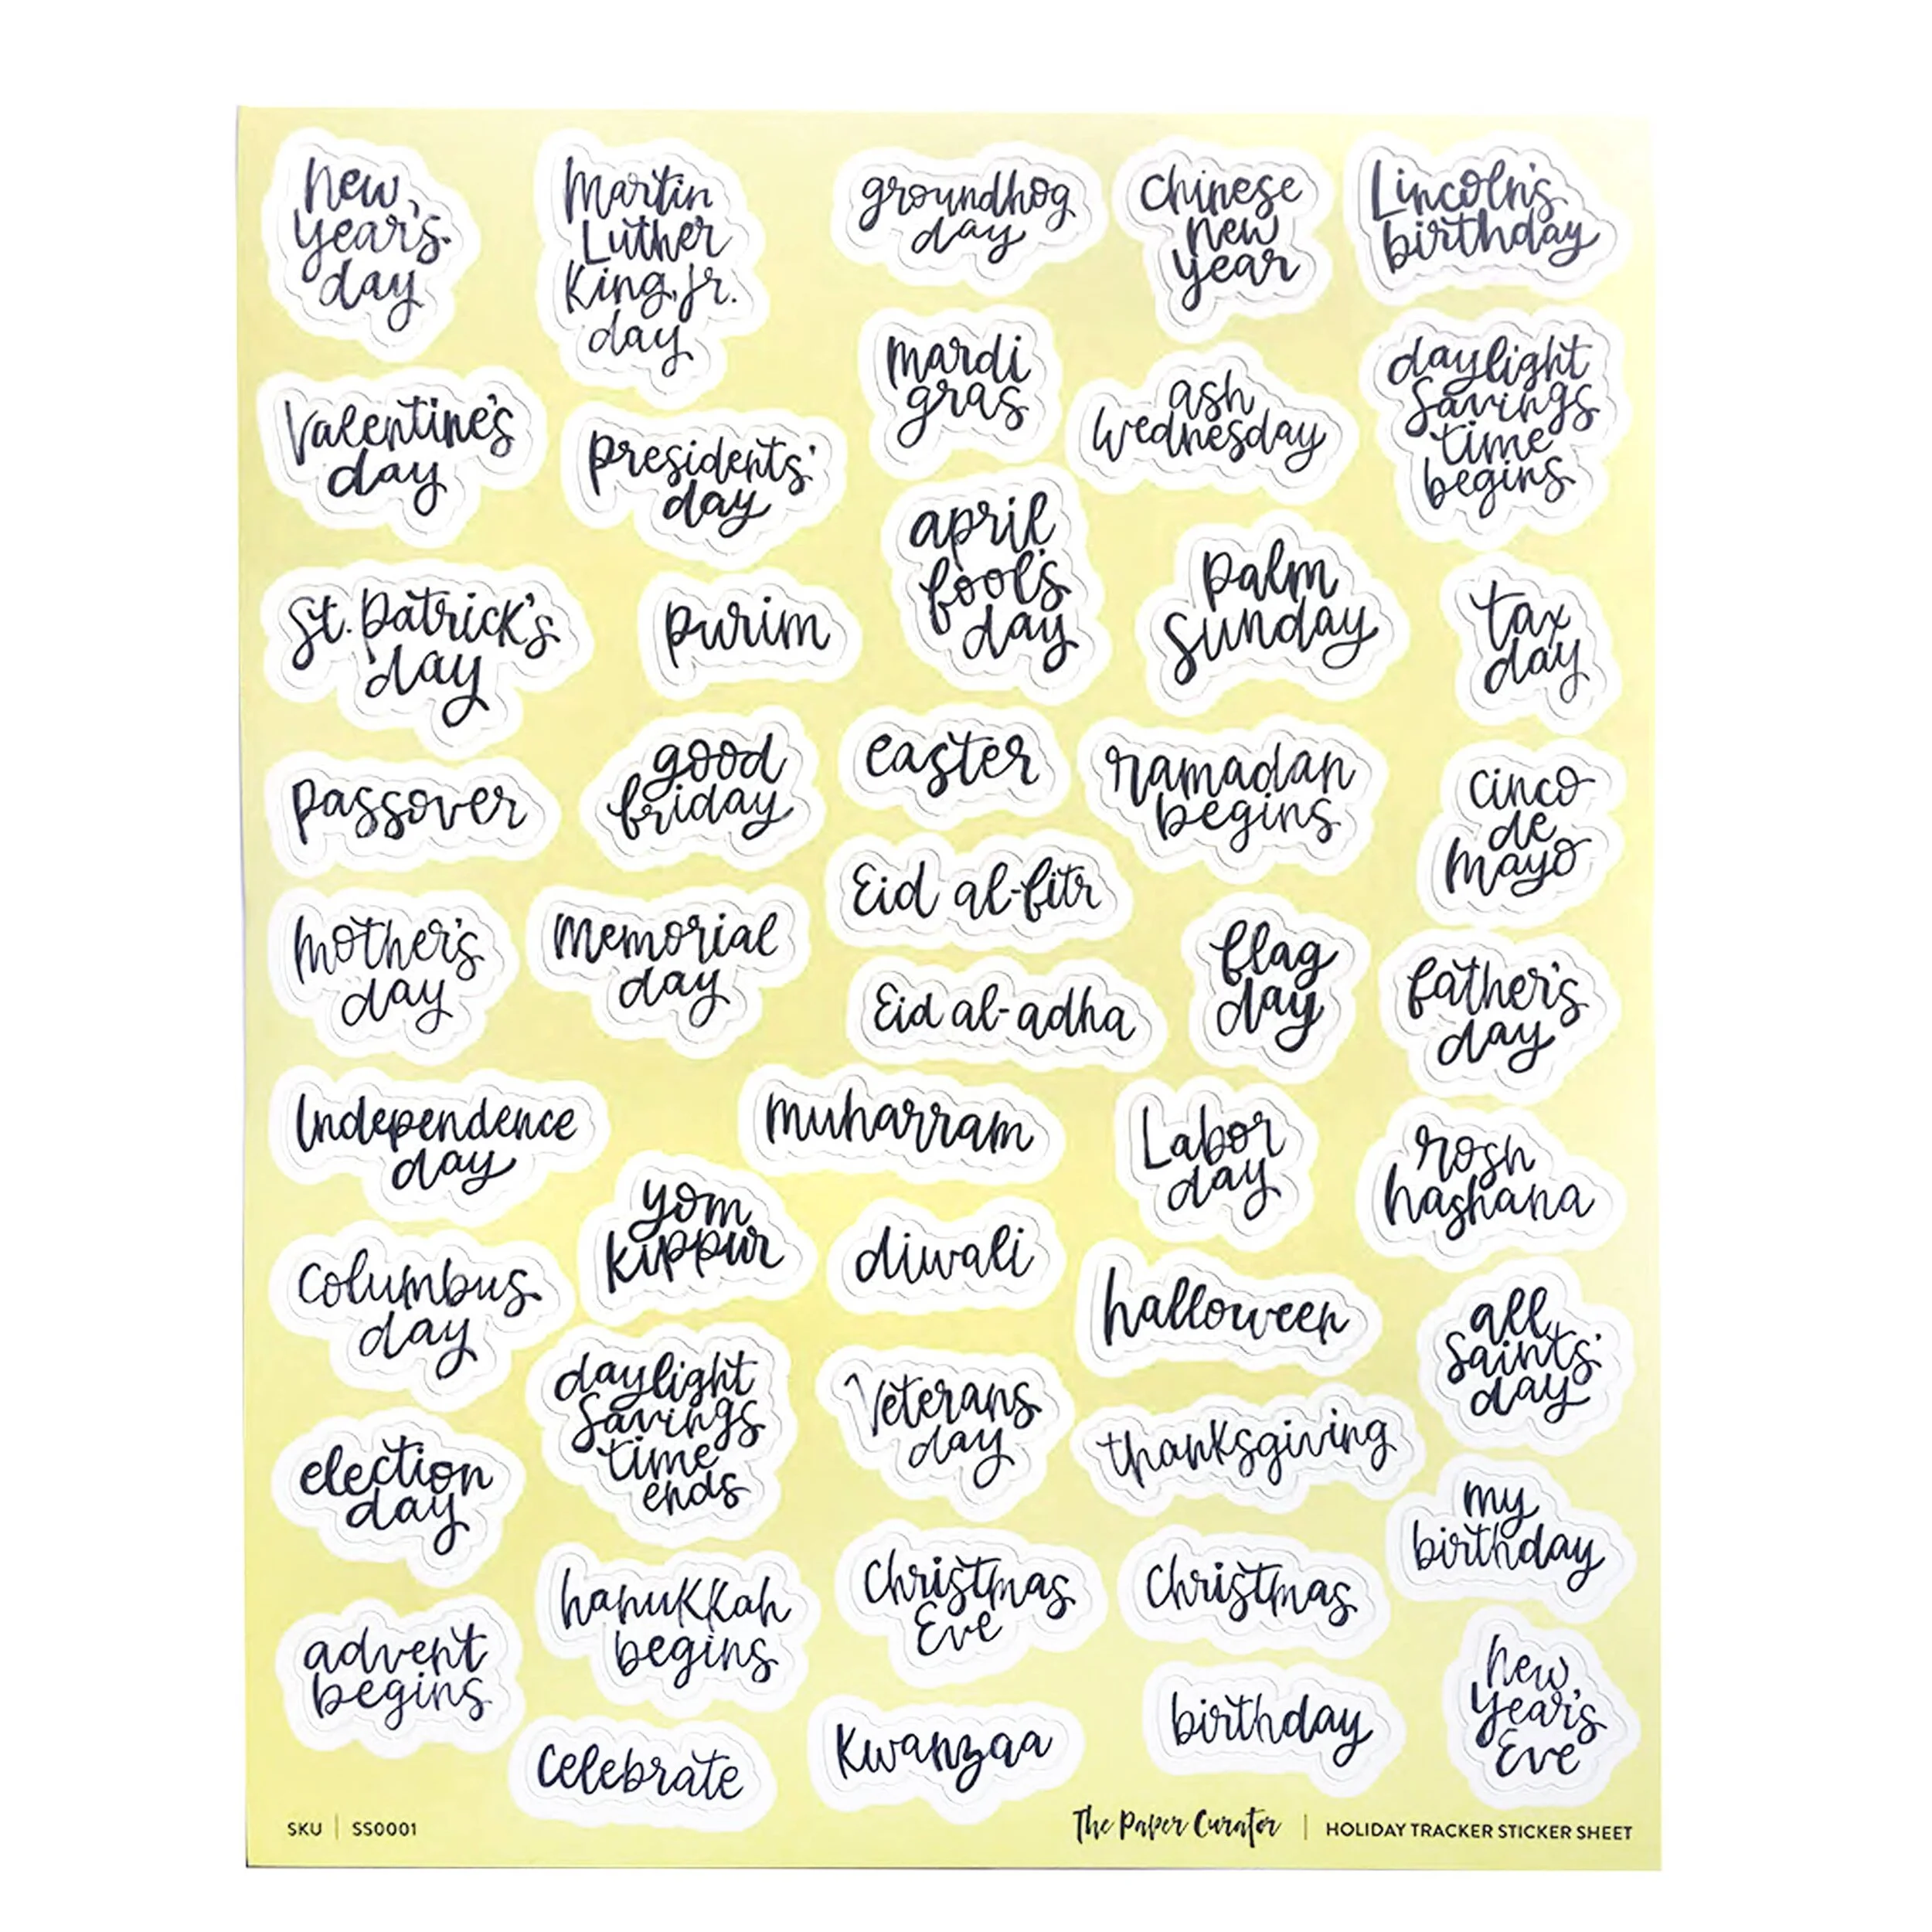 new
year's
day
Martin
Luther
King, Jr.
day
groundhog
day
chinese
new
year
Lincoln's
birthday
Valentine's
day
presidents'
day
mardi
gras
ash
wednesday
daylight
savings
time
begins
St. Patrick's
day
purim
april
fool's
day
palm
sunday
tax
day
passover
good
friday
easter
ramadan
begins
cinco
de
mayo
Eid al-fitr
mother's
day
Memorial
day
Eid al-adha
flag
day
father's
day
Independence
day
muharram
Labor
day
rosh
hashana
yom
kippur
diwali
columbus
day
halloween
all
saints'
day
daylight
savings
time
ends
Veterans
day
thanksgiving
election
day
my
birthday
hanukkah
begins
Christmas
Eve
Christmas
advent
begins
celebrate
Kwanzaa
birthday
new
year's
Eve
SKU | SS0001
The Paper Curator | HOLIDAY TRACKER STICKER SHEET